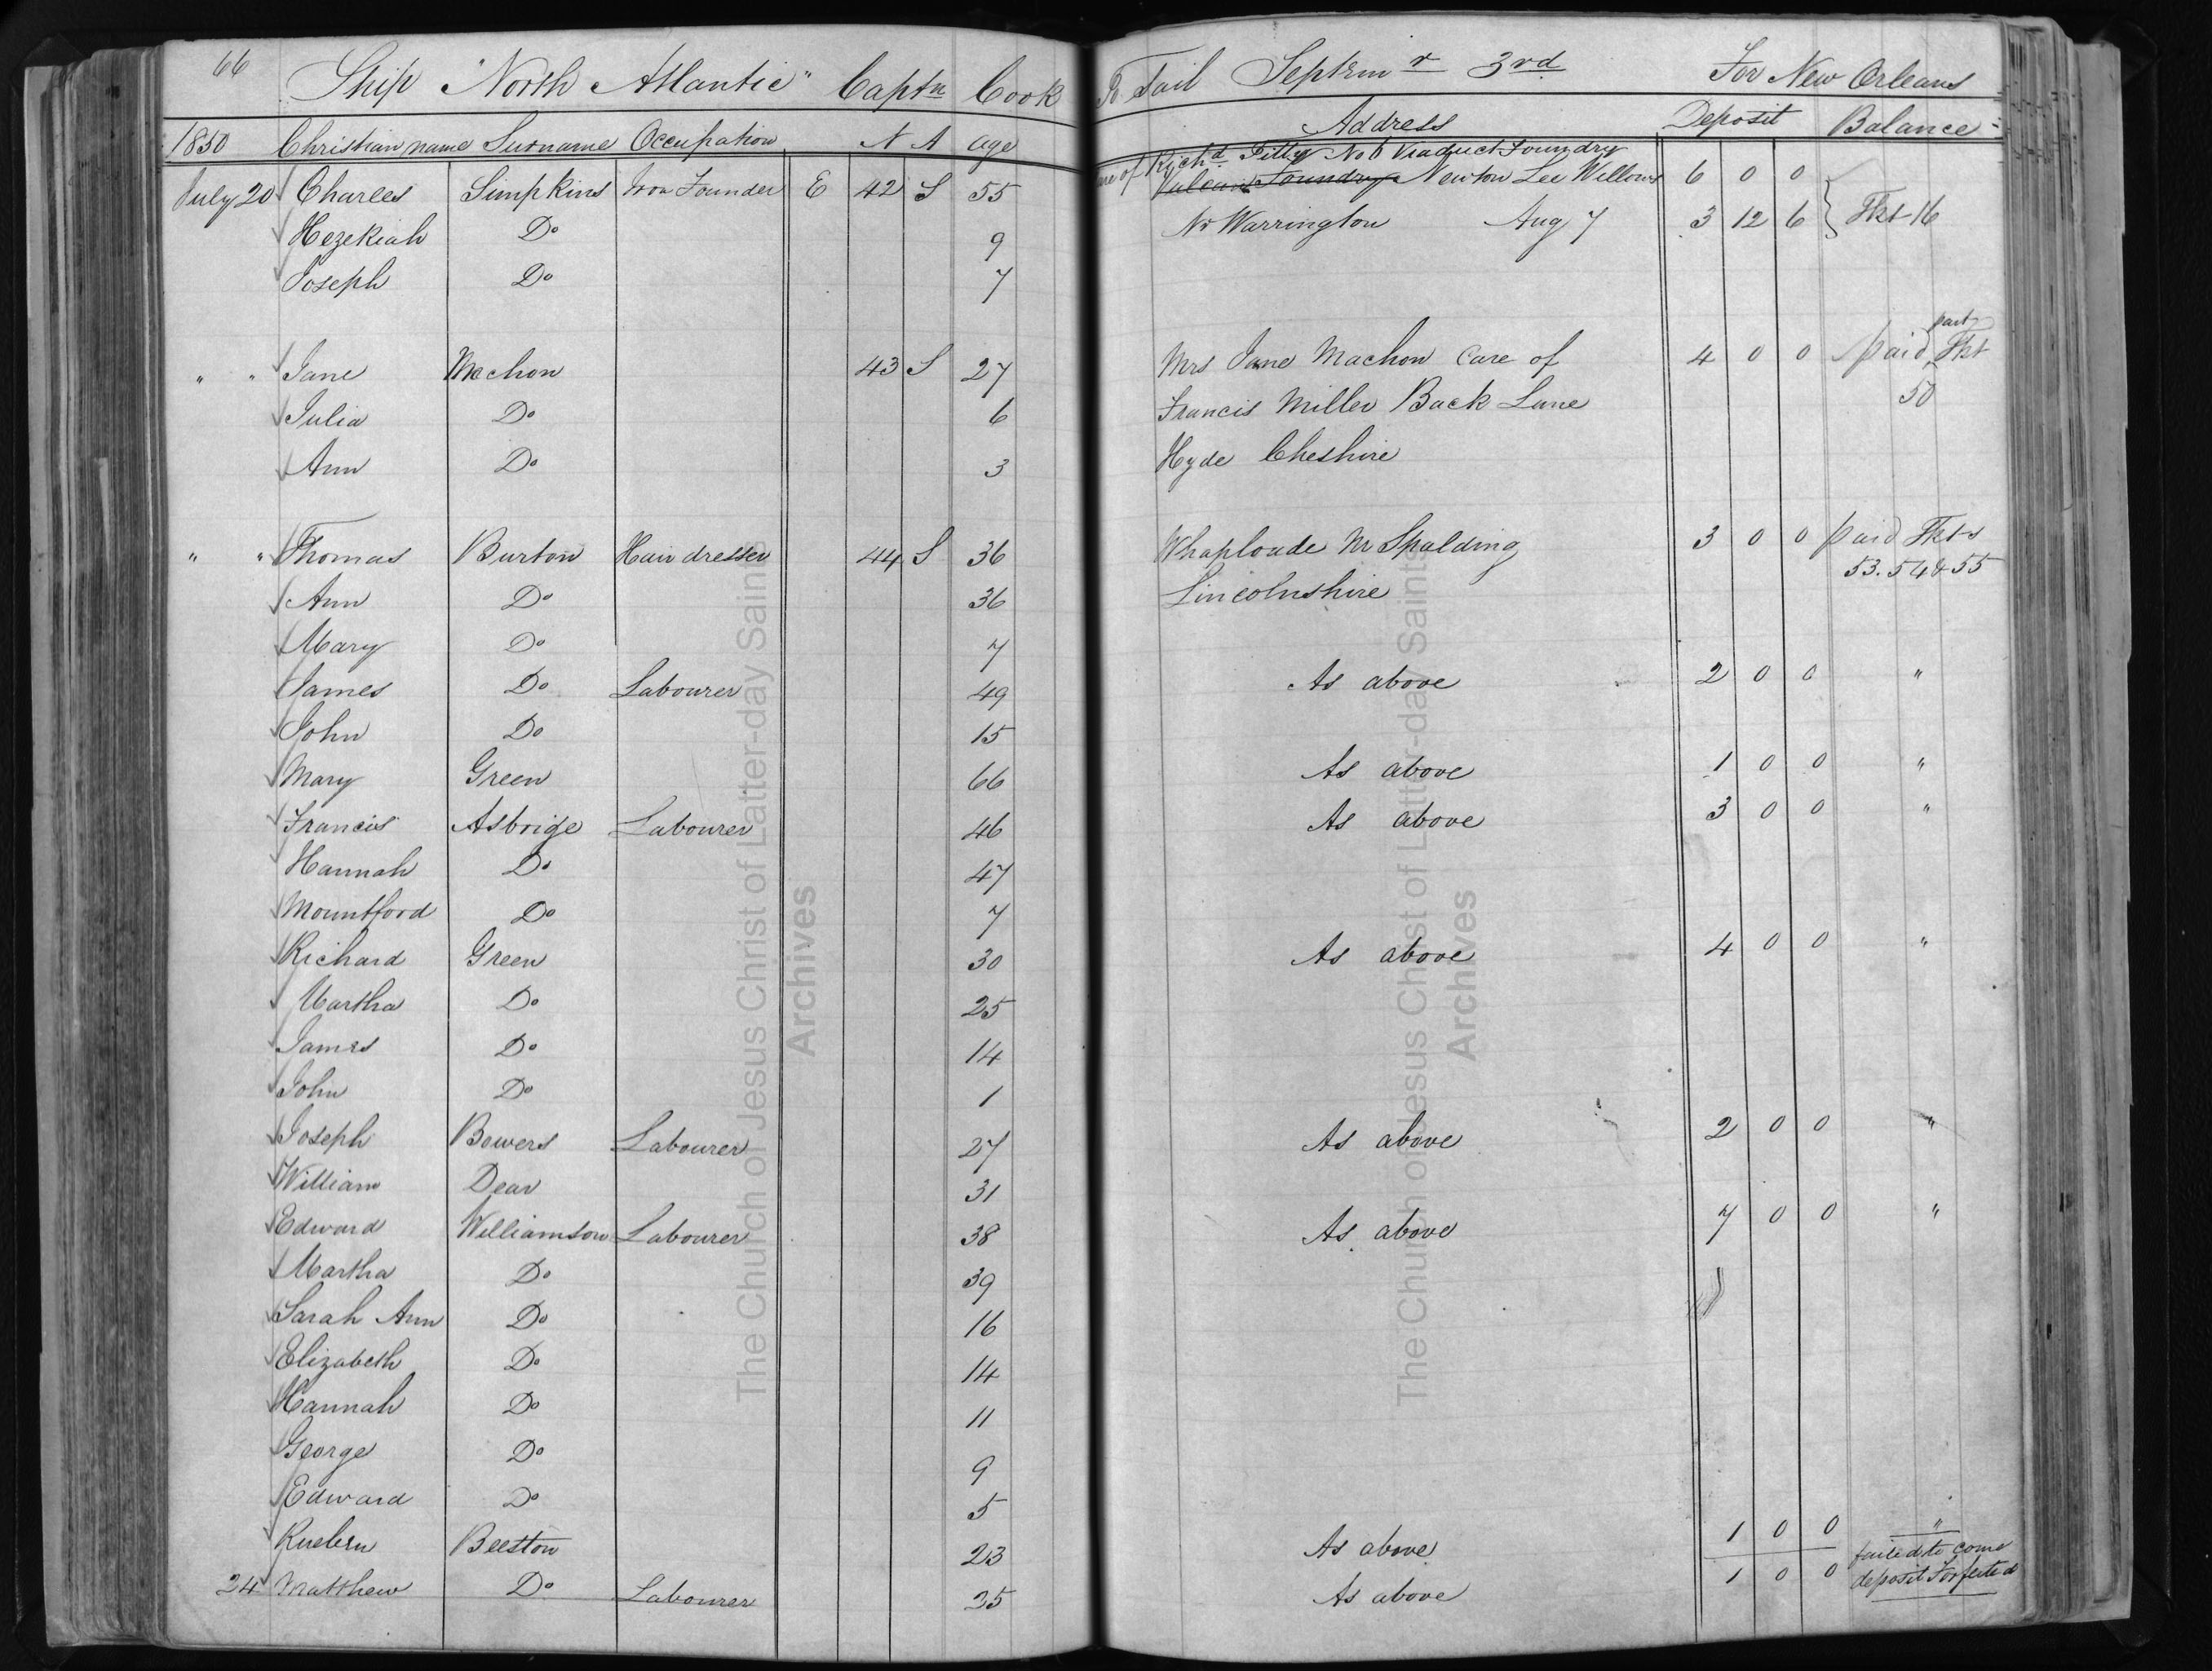 66
Ship "North Atlantic" Captn Cook To Sail Septemr 3rd For New Orleans
1850 Christian name Surname Occupation N A age Address Deposit Balance
Richd No 6 Viaduct Foundry
July 20 Charles Simpkins Iron Founder E 42 S 55 Vulcan Foundry Newton Lee Willows 6 0 0
Hezekiah Do 9 Nr Warrington Aug 7 3 12 6 } Tkt 16
Joseph Do 7
" " Jane Machon 43 S 27 Mrs Jane Machon Care of 4 0 0 paid part Tkt
Julia Do 6 Francis Miller Back Lane 50
Ann Do 3 Hyde Cheshire
" " Thomas Burton Hair dresser 44 S 36 Whaploade Nr Spalding 3 0 0 paid Tkts
Ann Do 36 Lincolnshire 53. 54 & 55
Mary Do 7
James Do Labourer 49 As above 2 0 0 "
John Do 15
Mary Green 66 As above 1 0 0 "
Francis Asbrige Labourer 46 As above 3 0 0 "
Hannah Do 47
Mountford Do 7
Richard Green 30 As above 4 0 0 "
Martha Do 25
James Do 14
John Do 1
Joseph Bowers Labourer 27 As above 2 0 0 "
William Dear 31
Edward Williamson Labourer 38 As above 7 0 0 "
Martha Do 39
Sarah Ann Do 16
Elizabeth Do 14
Hannah Do 11
George Do 9
Edward Do 5
Rueben Beeston 23 As above 1 0 0 "
24 Matthew Do Labourer 25 As above 1 0 0 failed to come
deposit Forfeited
The Church of Jesus Christ of Latter-day Saints
Archives
The Church of Jesus Christ of Latter-day Saints
Archives